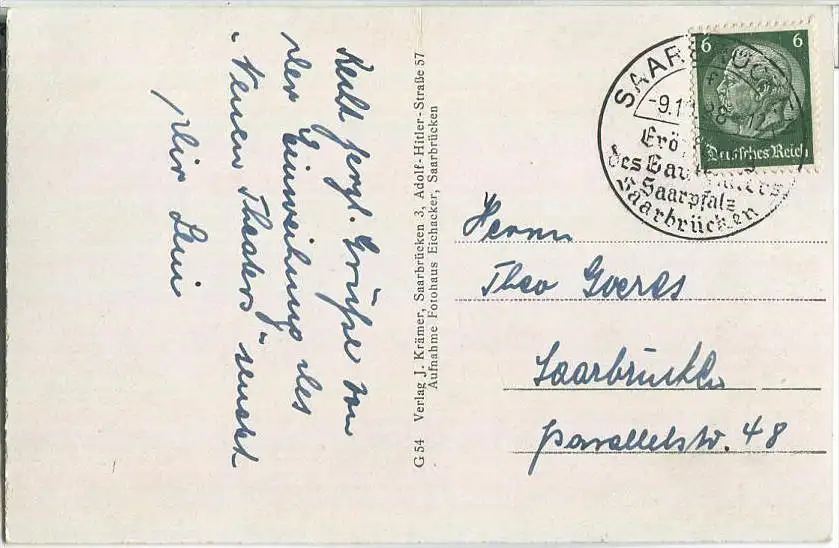 Recht herzl. Grüße von
der Einweihung des
"Neuen Theaters" sendet
Dir
G 54 Verlag J. Krämer, Saarbrücken 3, Adolf-Hitler-Straße 57
Aufnahme Fotohaus Eichacker, Saarbrücken
6 6
Deutsches Reich
SAARBRÜCK
-9.1
Erö
des Gautheaters
Saarpfalz
Saarbrücken
Herrn
Theo Goeres
Saarbrücken
Parallelstr. 48